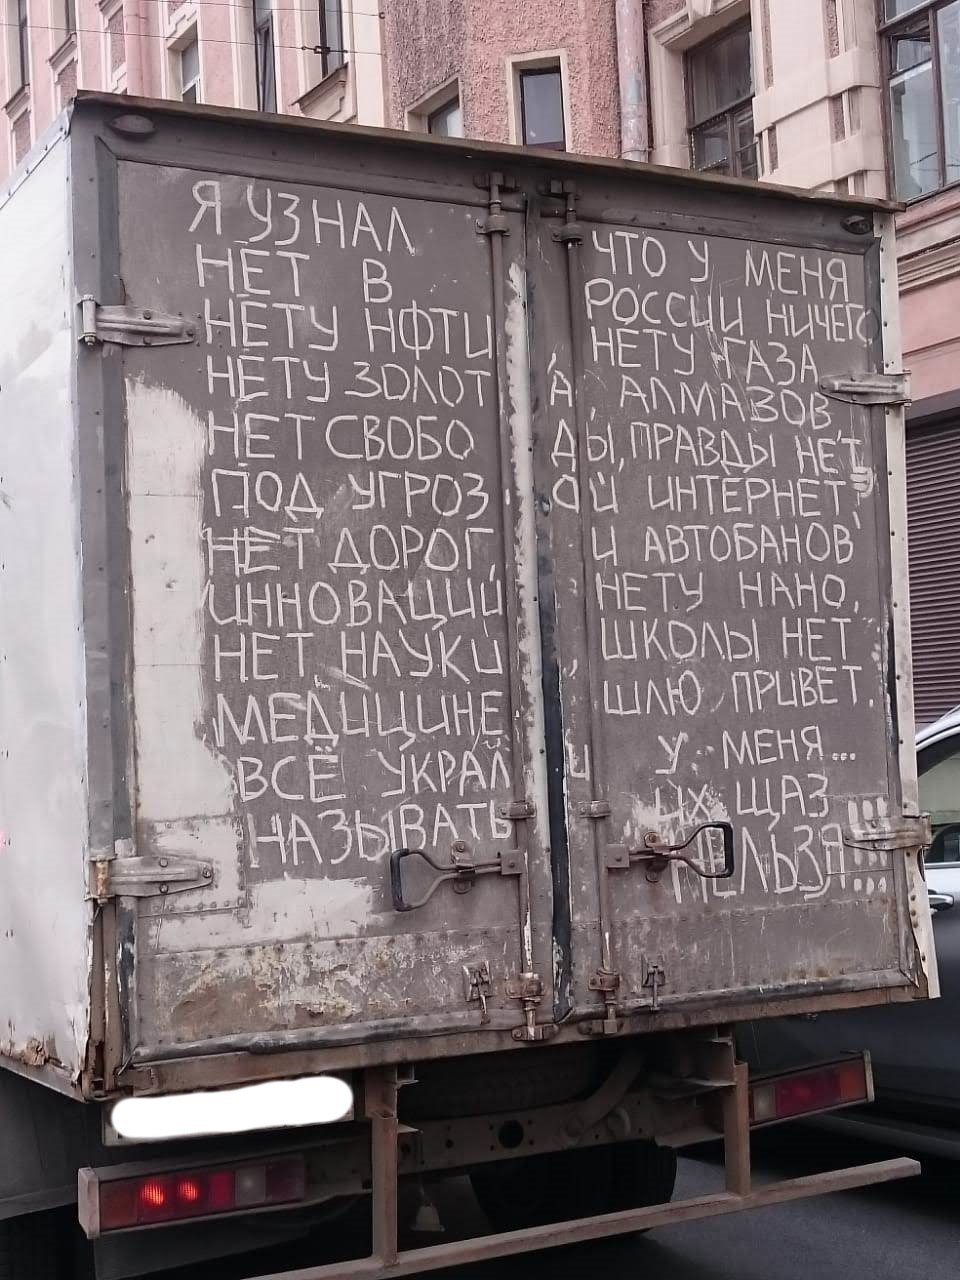 Я УЗНАЛ ЧТО У МЕНЯ
НЕТ В РОССИИ НИЧЕГО
НЕТУ НФТИ НЕТУ ГАЗА
НЕТУ ЗОЛОТ А, АЛМАЗОВ,
НЕТ СВОБО ДЫ, ПРАВДЫ НЕТ
ПОД УГРОЗ ОЙ ИНТЕРНЕТ!
НЕТ ДОРОГ, И АВТОБАНОВ
ИННОВАЦИЙ НЕТУ НАНО,
НЕТ НАУКИ, ШКОЛЫ НЕТ
МЕДИЦИНЕ ШЛЮ ПРИВЕТ.
ВСЁ УКРАЛ И У МЕНЯ...
НАЗЫВАТЬ ИХ ЩАЗ
НЕЛЬЗЯ!!!